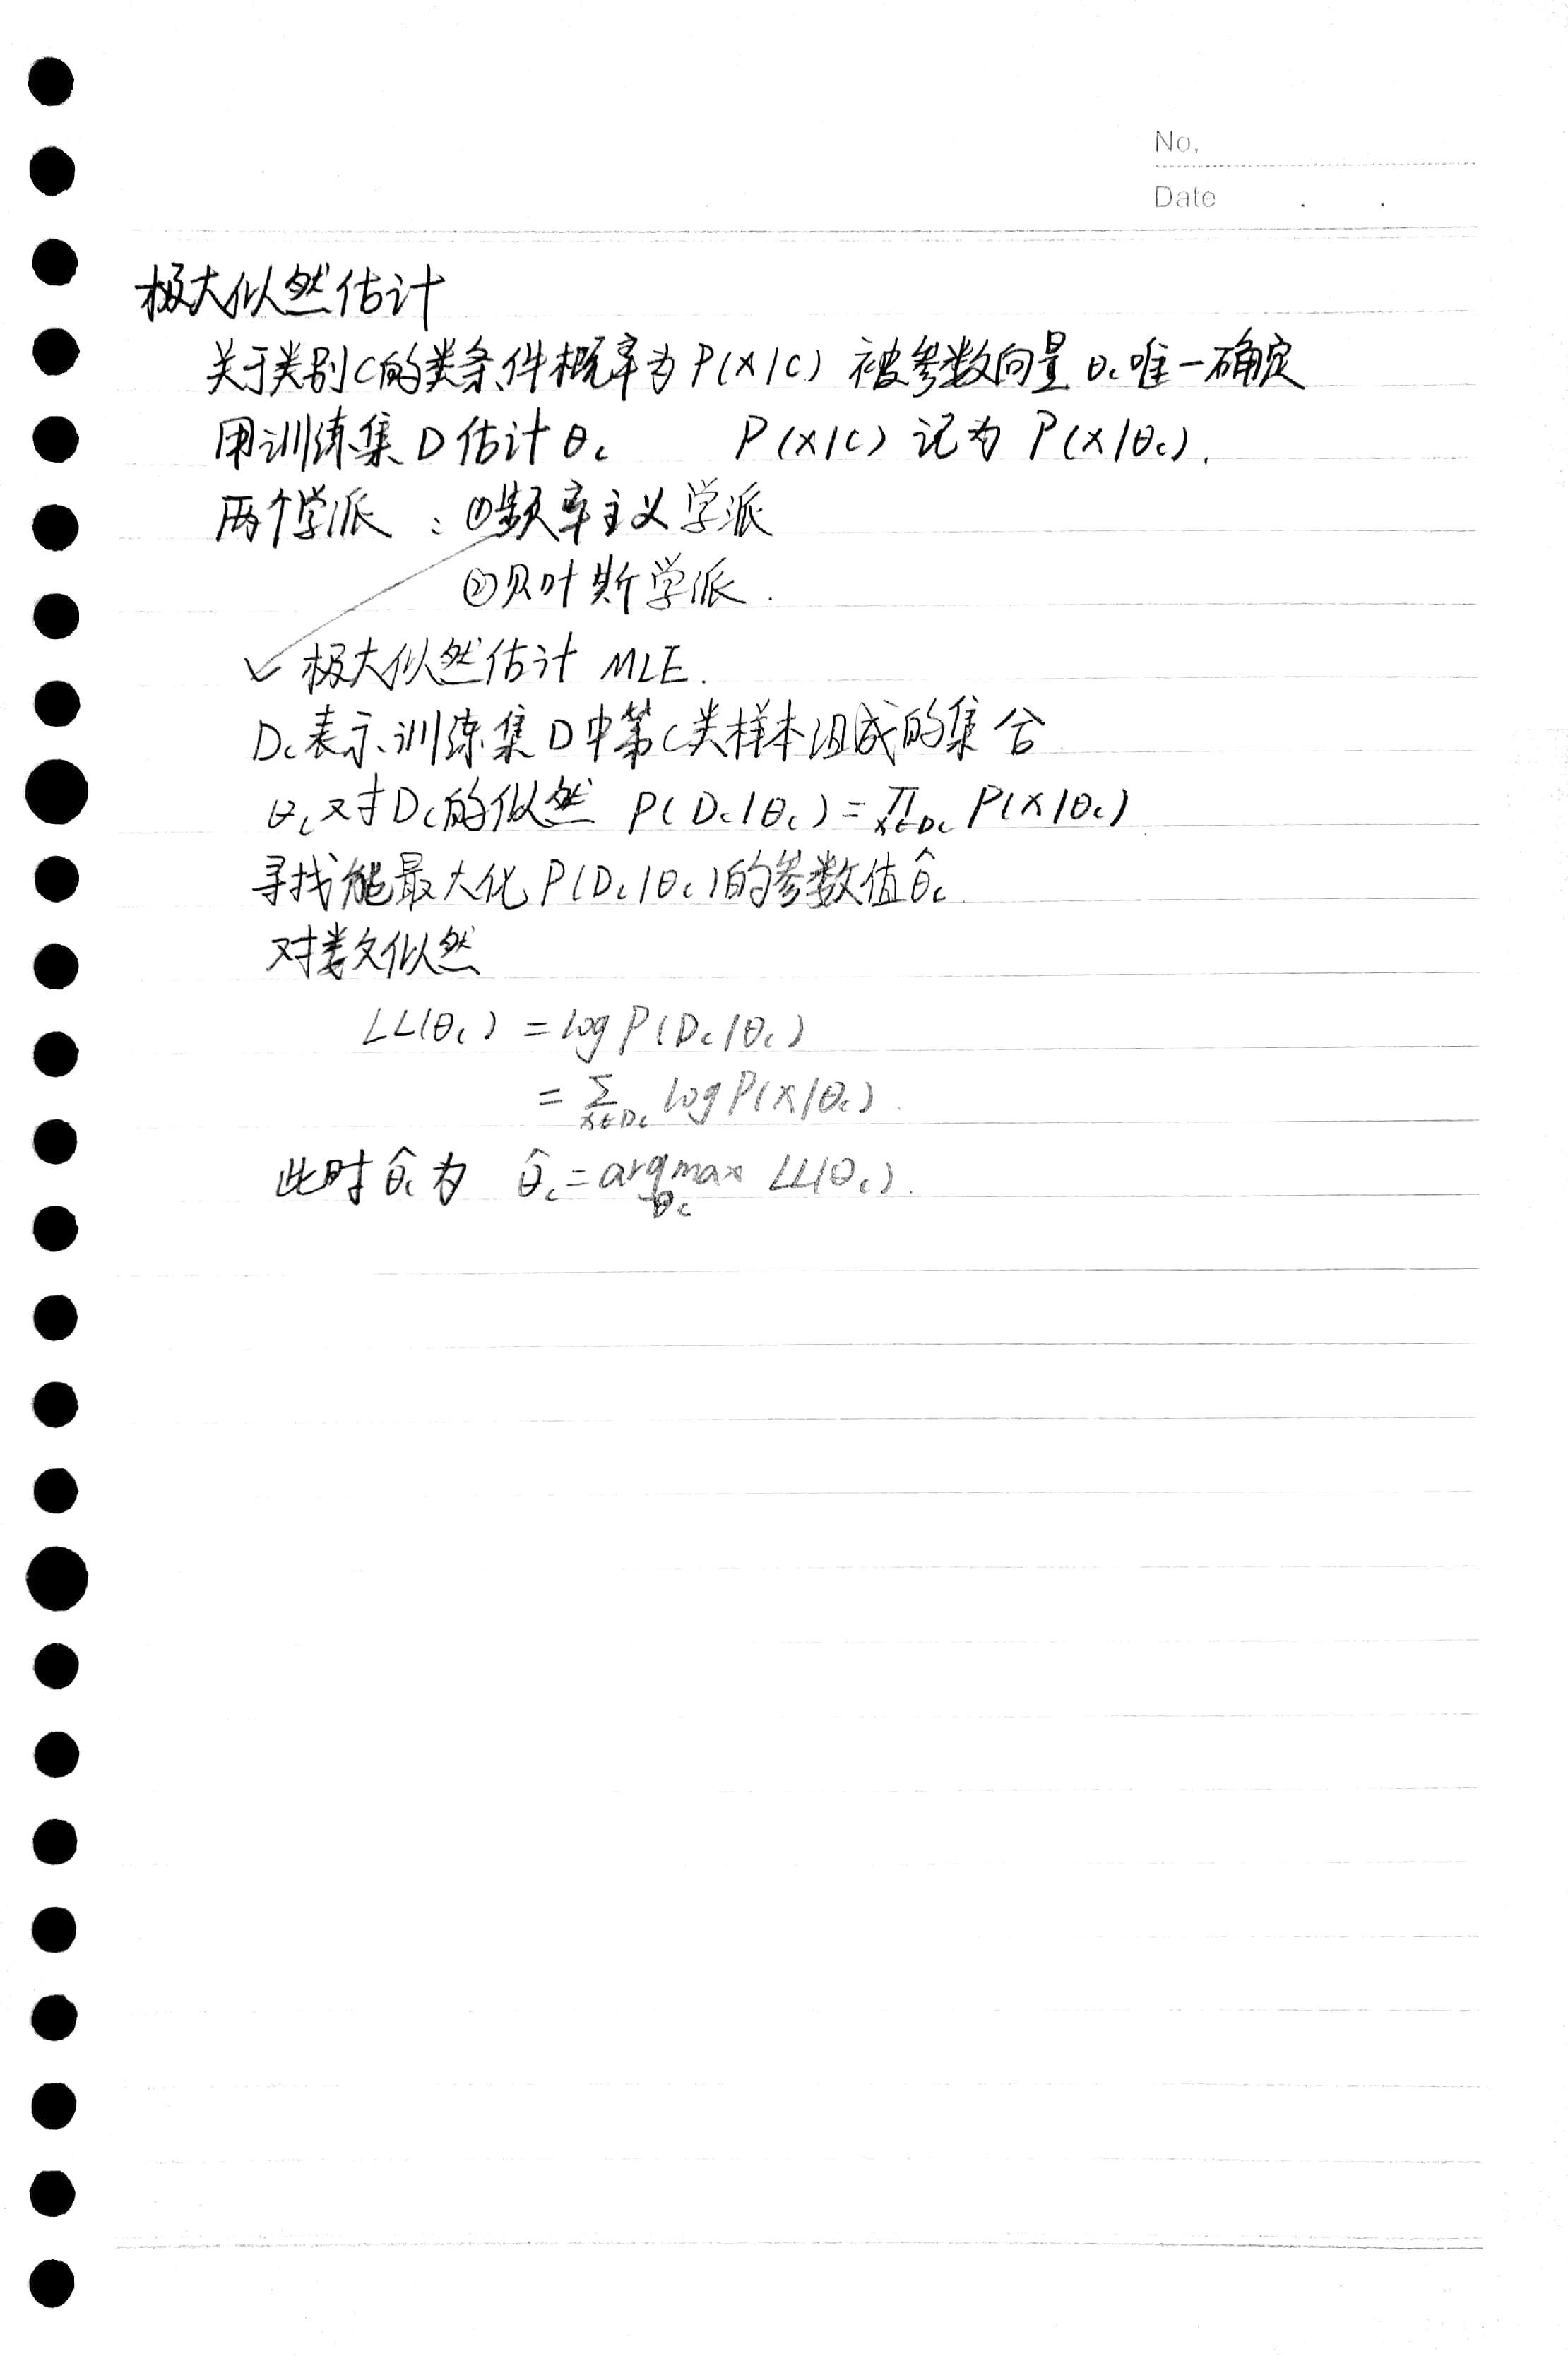 No.
Date . .
极大似然估计
关于类别c的类条件概率为 P(x|c) 被参数向量 θc 唯一确定
用训练集 D 估计 θc P(x|c) 记为 P(x|θc).
两个学派：①频率主义学派
②贝叶斯学派.
极大似然估计 MLE.
Dc表示训练集D中第c类样本组成的集合
θc对Dc的似然 P(Dc|θc)=∏x∈Dc P(x|θc)
寻找能最大化 P(Dc|θc)的参数值θ̂c
对数似然
LL(θc) = log P(Dc|θc)
= Σx∈Dc log P(x|θc).
此时 θ̂c 为 θ̂c = argmax θc LL(θc).